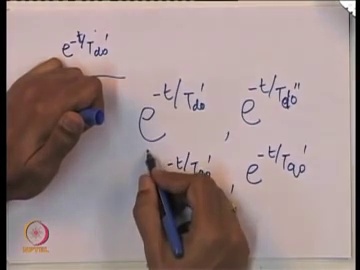 e^{-t/T_{do}'}
e^{-t/T_{do}'} , e^{-t/T_{do}''}
-t/T_{qo}' , e^{-t/T_{qo}'}
NPTEL